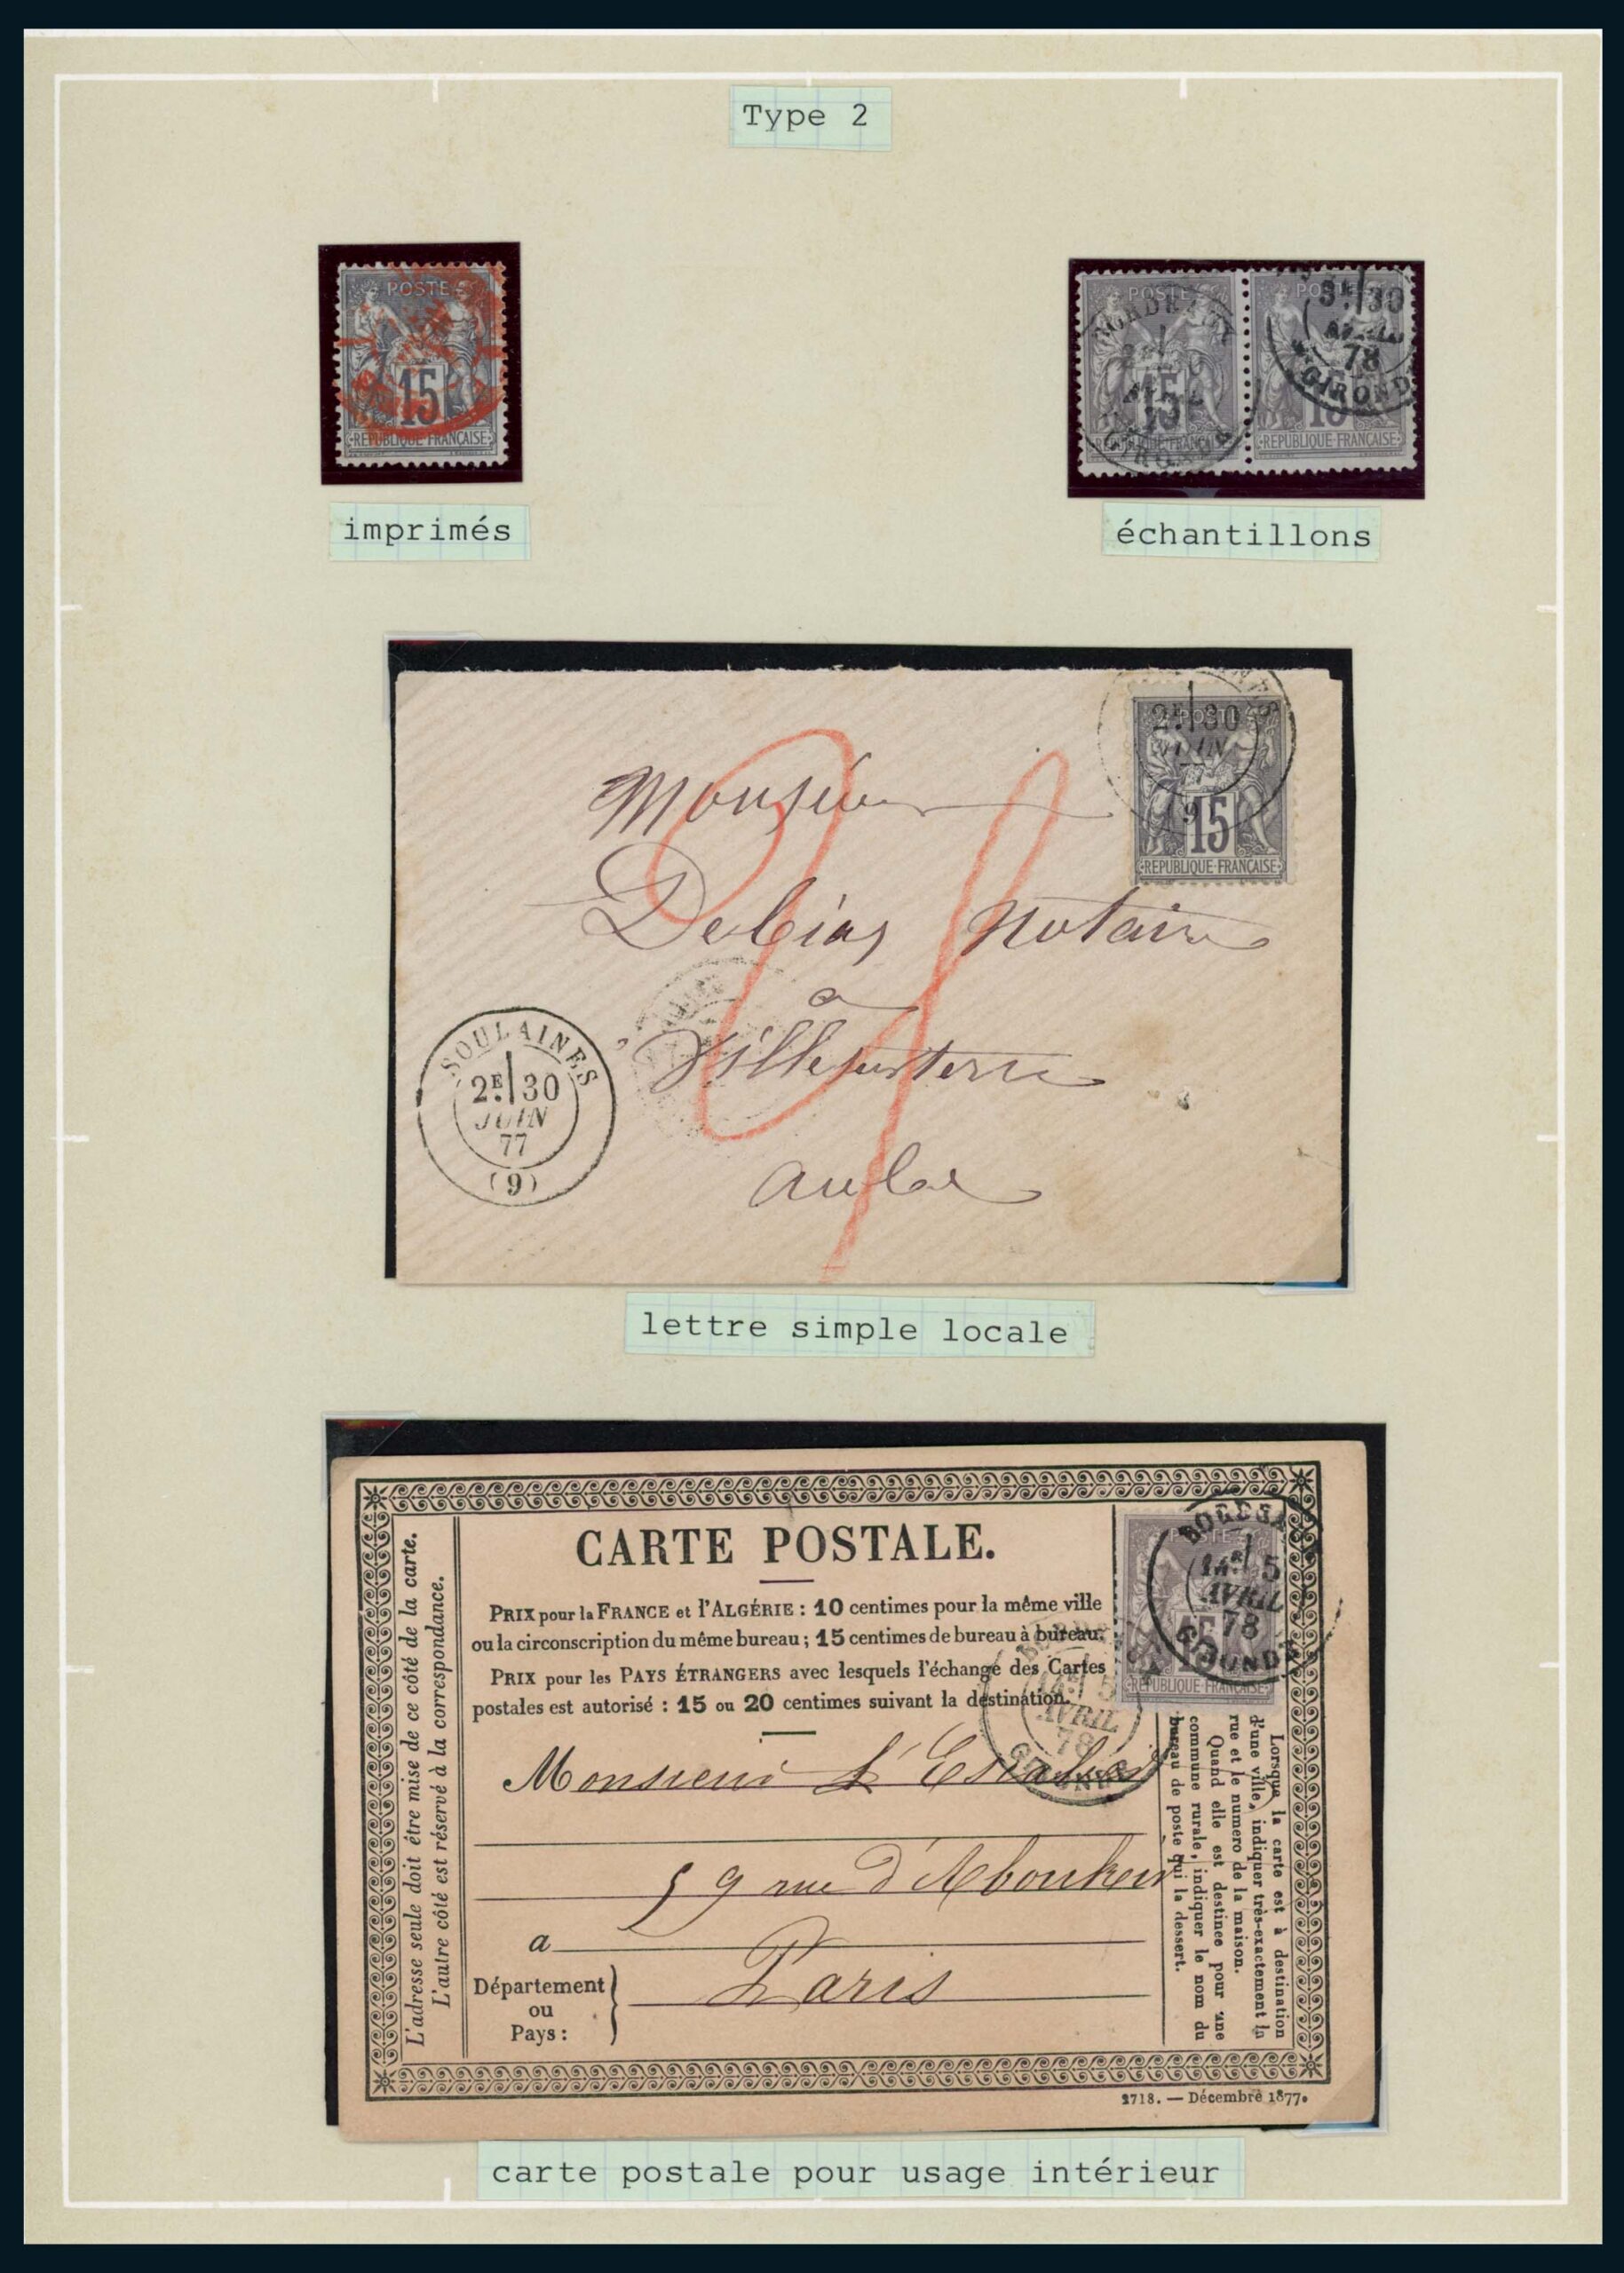 Type 2
POSTE
15
REPUBLIQUE FRANCAISE
POSTE
15
REPUBLIQUE FRANCAISE
POSTE
15
REPUBLIQUE FRANCAISE
3E/30
78
GIROND
imprimés
échantillons
POSTE
15
REPUBLIQUE FRANCAISE
2E/30
JUIN
Monsieur
Debias Notaire
a
aube
SOULAINES
2E/30
JUIN
77
(9)
lettre simple locale
CARTE POSTALE.
PRIX pour la FRANCE et l'ALGÉRIE : 10 centimes pour la même ville
ou la circonscription du même bureau ; 15 centimes de bureau à bureau.
PRIX pour les PAYS ÉTRANGERS avec lesquels l'échange des Cartes
postales est autorisé : 15 ou 20 centimes suivant la destination.
L'adresse seule doit être mise de ce côté de la carte.
L'autre côté est réservé à la correspondance.
POSTE
15
REPUBLIQUE FRANCAISE
5
AVRIL
78
5
AVRIL
78
Monsieur
59 rue d'Aboukir
a
Paris
Département
ou
Pays :
Lorsque la carte est à destination
d'une ville, indiquer très-exactement la
rue et le numéro de la maison.
Quand elle est destinée pour une
commune rurale, indiquer le nom du
bureau de poste qui la dessert.
2718. — Décembre 1877.
carte postale pour usage intérieur